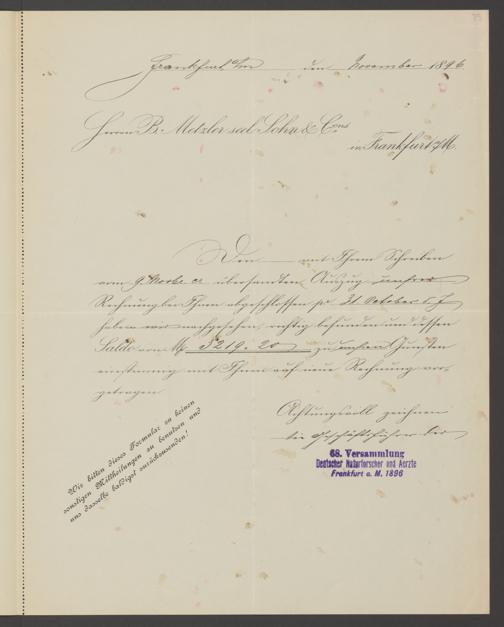 Frankfurt a/m den November 1896
Herren B. Metzler seel. Sohn & Cons.
in Frankfurt a/M.
Den mit Ihrem Schreiben
vom 9. Novbr. cr. übersandten Auszug unserer
Rechnung bei Ihnen abgeschlossen pr 31 October c.
haben wir nachgesehen, richtig befunden und dessen
Saldo von M. 5219.20 zu unsren Gunsten
einstimmig mit Ihnen auf neue Rechnung vor-
getragen.
Achtungsvoll zeichnen
die Geschäftsführer der
68. Versammlung
Deutscher Naturforscher und Aerzte
Frankfurt a. M. 1896
Wir bitten dieses Formular zu keinen
sonstigen Mittheilungen zu benutzen und
uns dasselbe baldigst zurückzusenden!